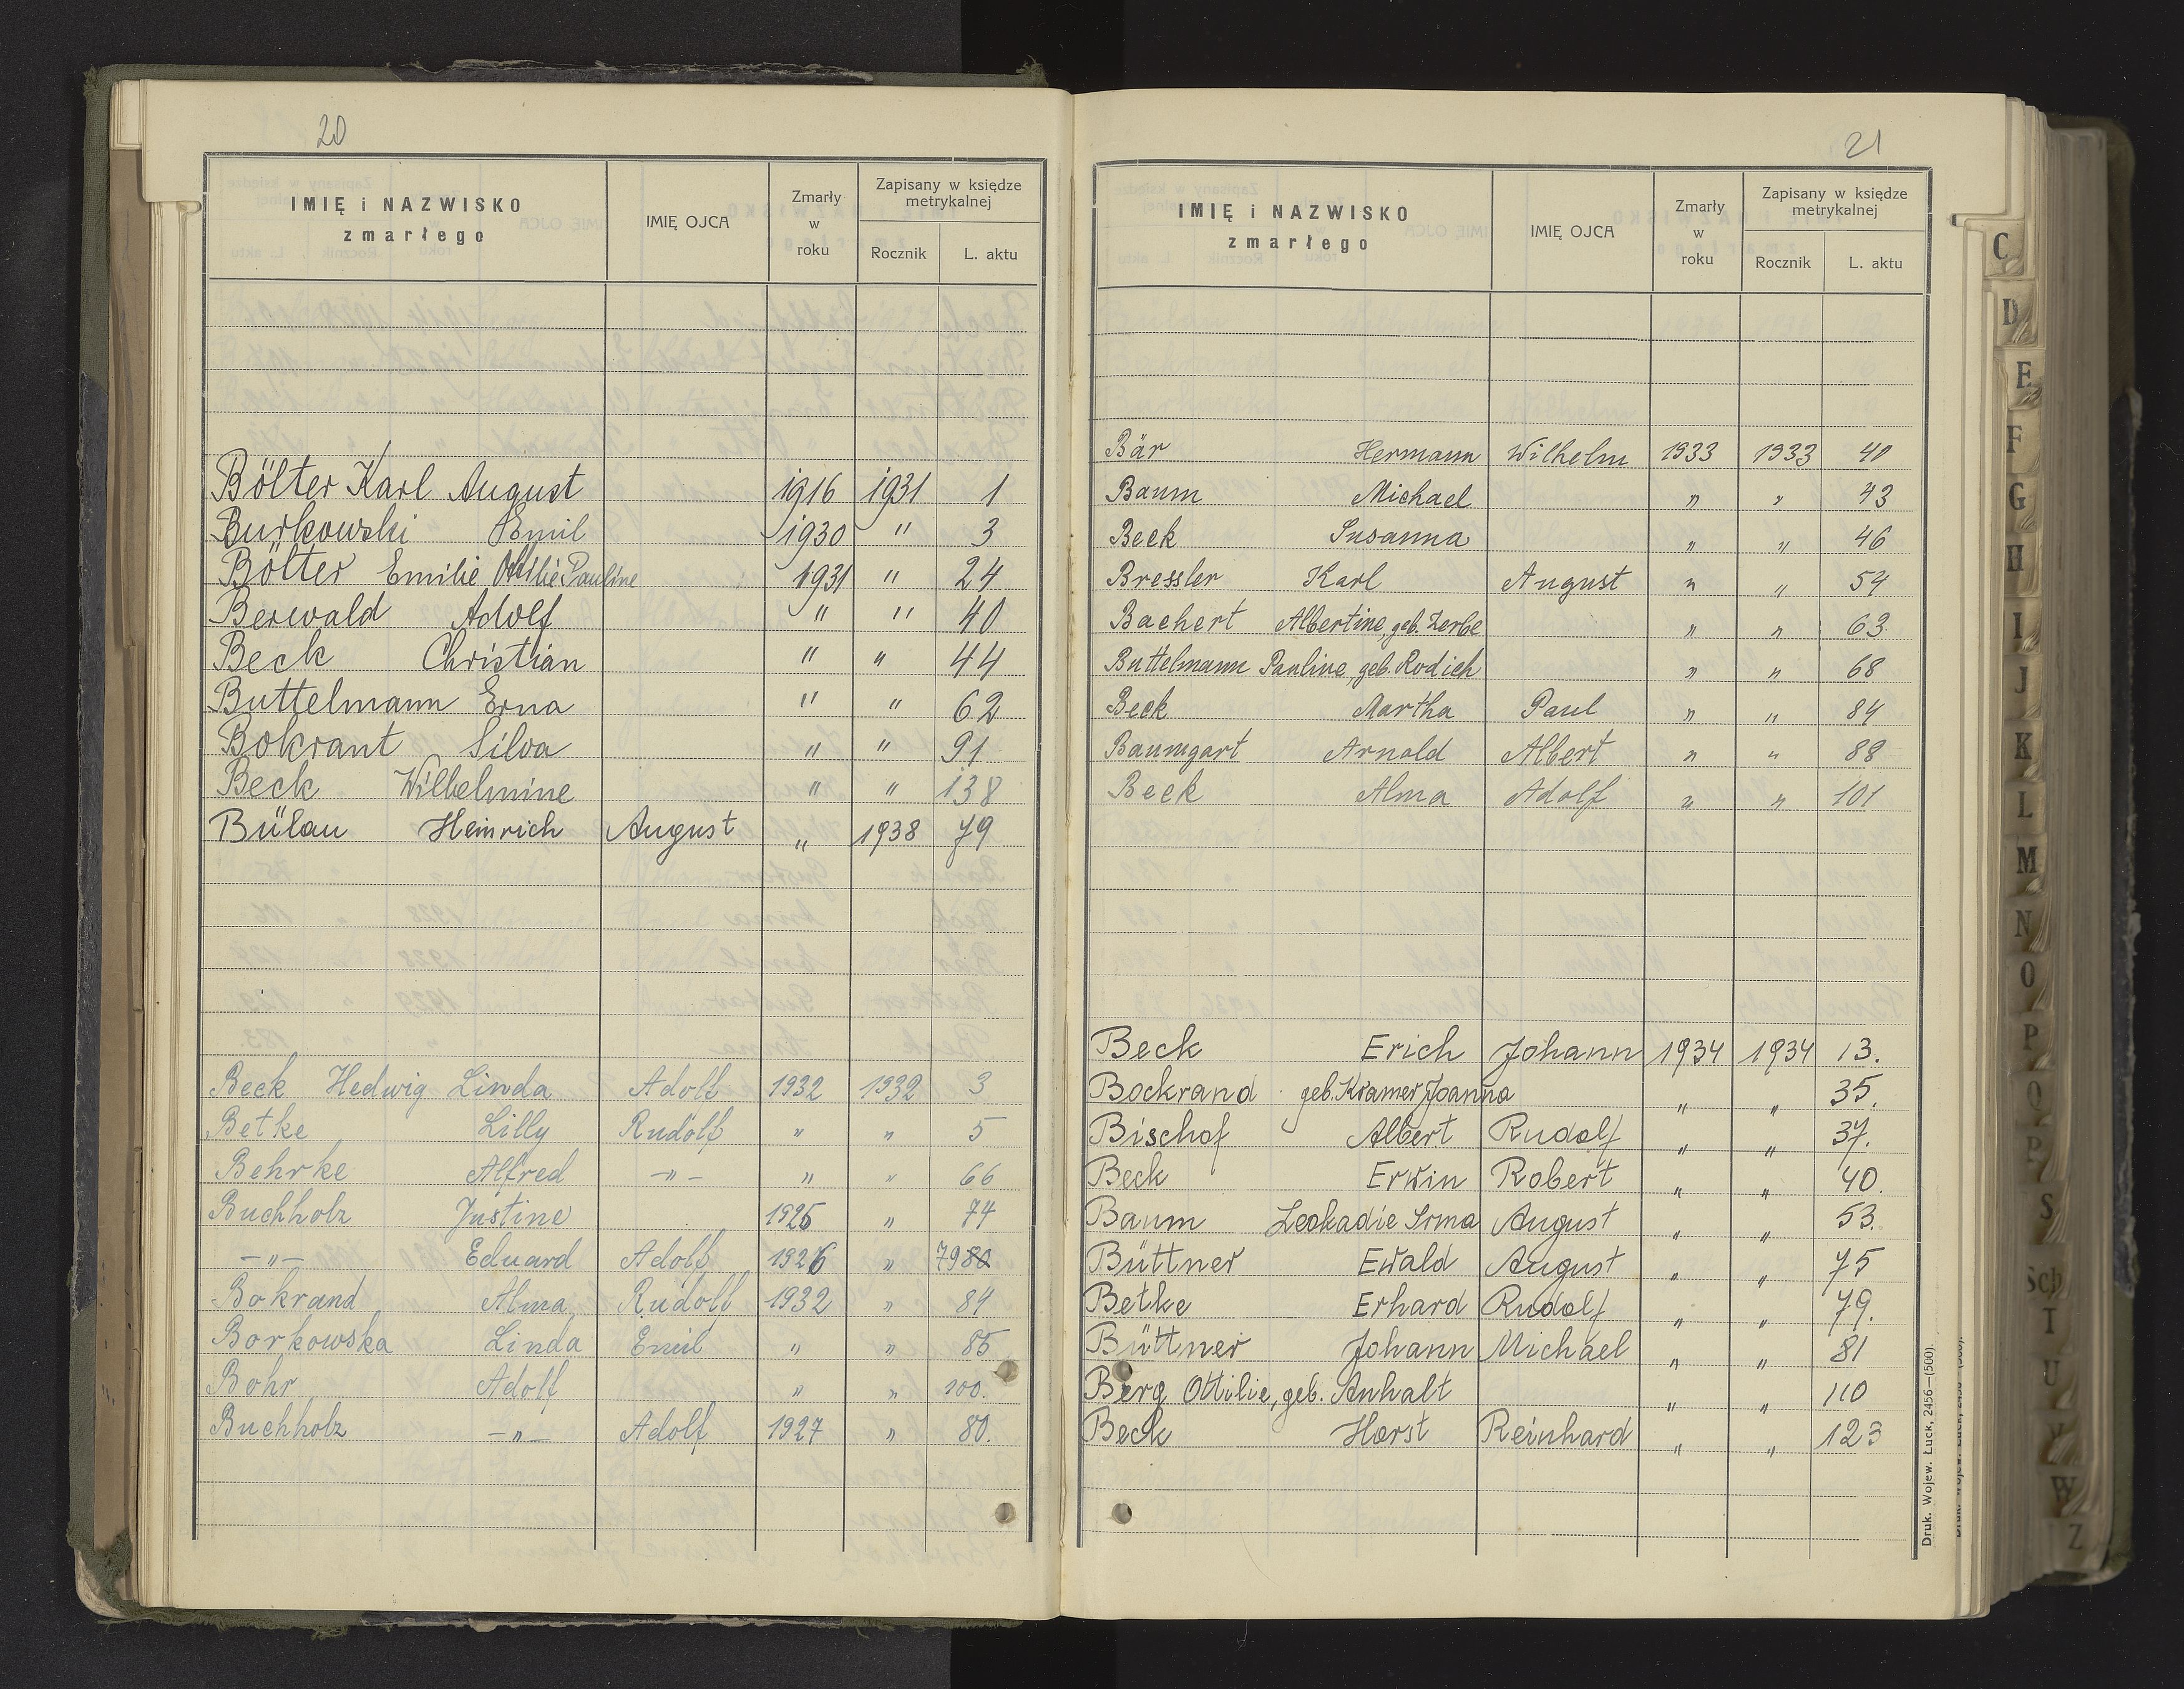 20
IMIĘ i NAZWISKO zmarłego IMIĘ OJCA Zmarły w roku Zapisany w księdze metrykalnej
Rocznik L. aktu
Bölter Karl August 1916 1931 1
Burkowski Emil 1930 " 3
Bölter Emilie Ottilie Pauline 1931 " 24
Berwald Adolf " " 40
Beck Christian " " 44
Buttelmann Erna " " 62
Bokrant Silva " " 91
Beck Wilhelmine " " 138
Bülau Heinrich August " 1938 79
Beck Hedwig Linda Adolf 1932 1932 3
Betke Lilly Rudolf " " 5
Behrke Alfred -"- " " 66
Buchholz Justine 1925 " 74
-"- Eduard Adolf 1926 " 79 80
Bokrand Alma Rudolf 1932 " 84
Borkowska Linda Emil " " 85
Bohr Adolf " " 100.
Buchholz -"- Adolf 1927 " 80.
21
IMIĘ i NAZWISKO zmarłego IMIĘ OJCA Zmarły w roku Zapisany w księdze metrykalnej
Rocznik L. aktu
Bär Hermann Wilhelm 1933 1933 40
Baum Michael " " 43
Beck Susanna " " 46
Bressler Karl August " " 54
Bachert Albertine, geb. Zerbe " " 63.
Buttelmann Pauline, geb. Rodich " " 68
Beck Martha Paul " " 84
Baumgart Arnold Albert " " 88
Beck Alma Adolf " " 101
Beck Erich Johann 1934 1934 13.
Bockrand geb. Kramer Joanna " " 35.
Bischof Albert Rudolf " " 37.
Beck Erwin Robert " " 40.
Baum Leokadie Irma August " " 53.
Büttner Ewald August " " 75
Betke Erhard Rudolf " " 79.
Büttner Johann Michael " " 81
Berg Ottilie, geb. Anhalt " " 110
Beck Horst Reinhard " " 123
Druk. Wojew. Łuck, 2456—(500).
C
D
E
F
G
H
I
J
K
L
M
N
O
P
Q
R
S
Sch
T
U
V
W
Z